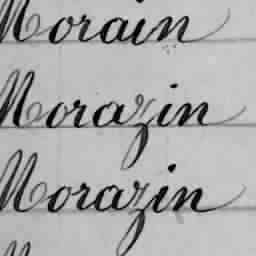 Morain
Morazin
Morazin